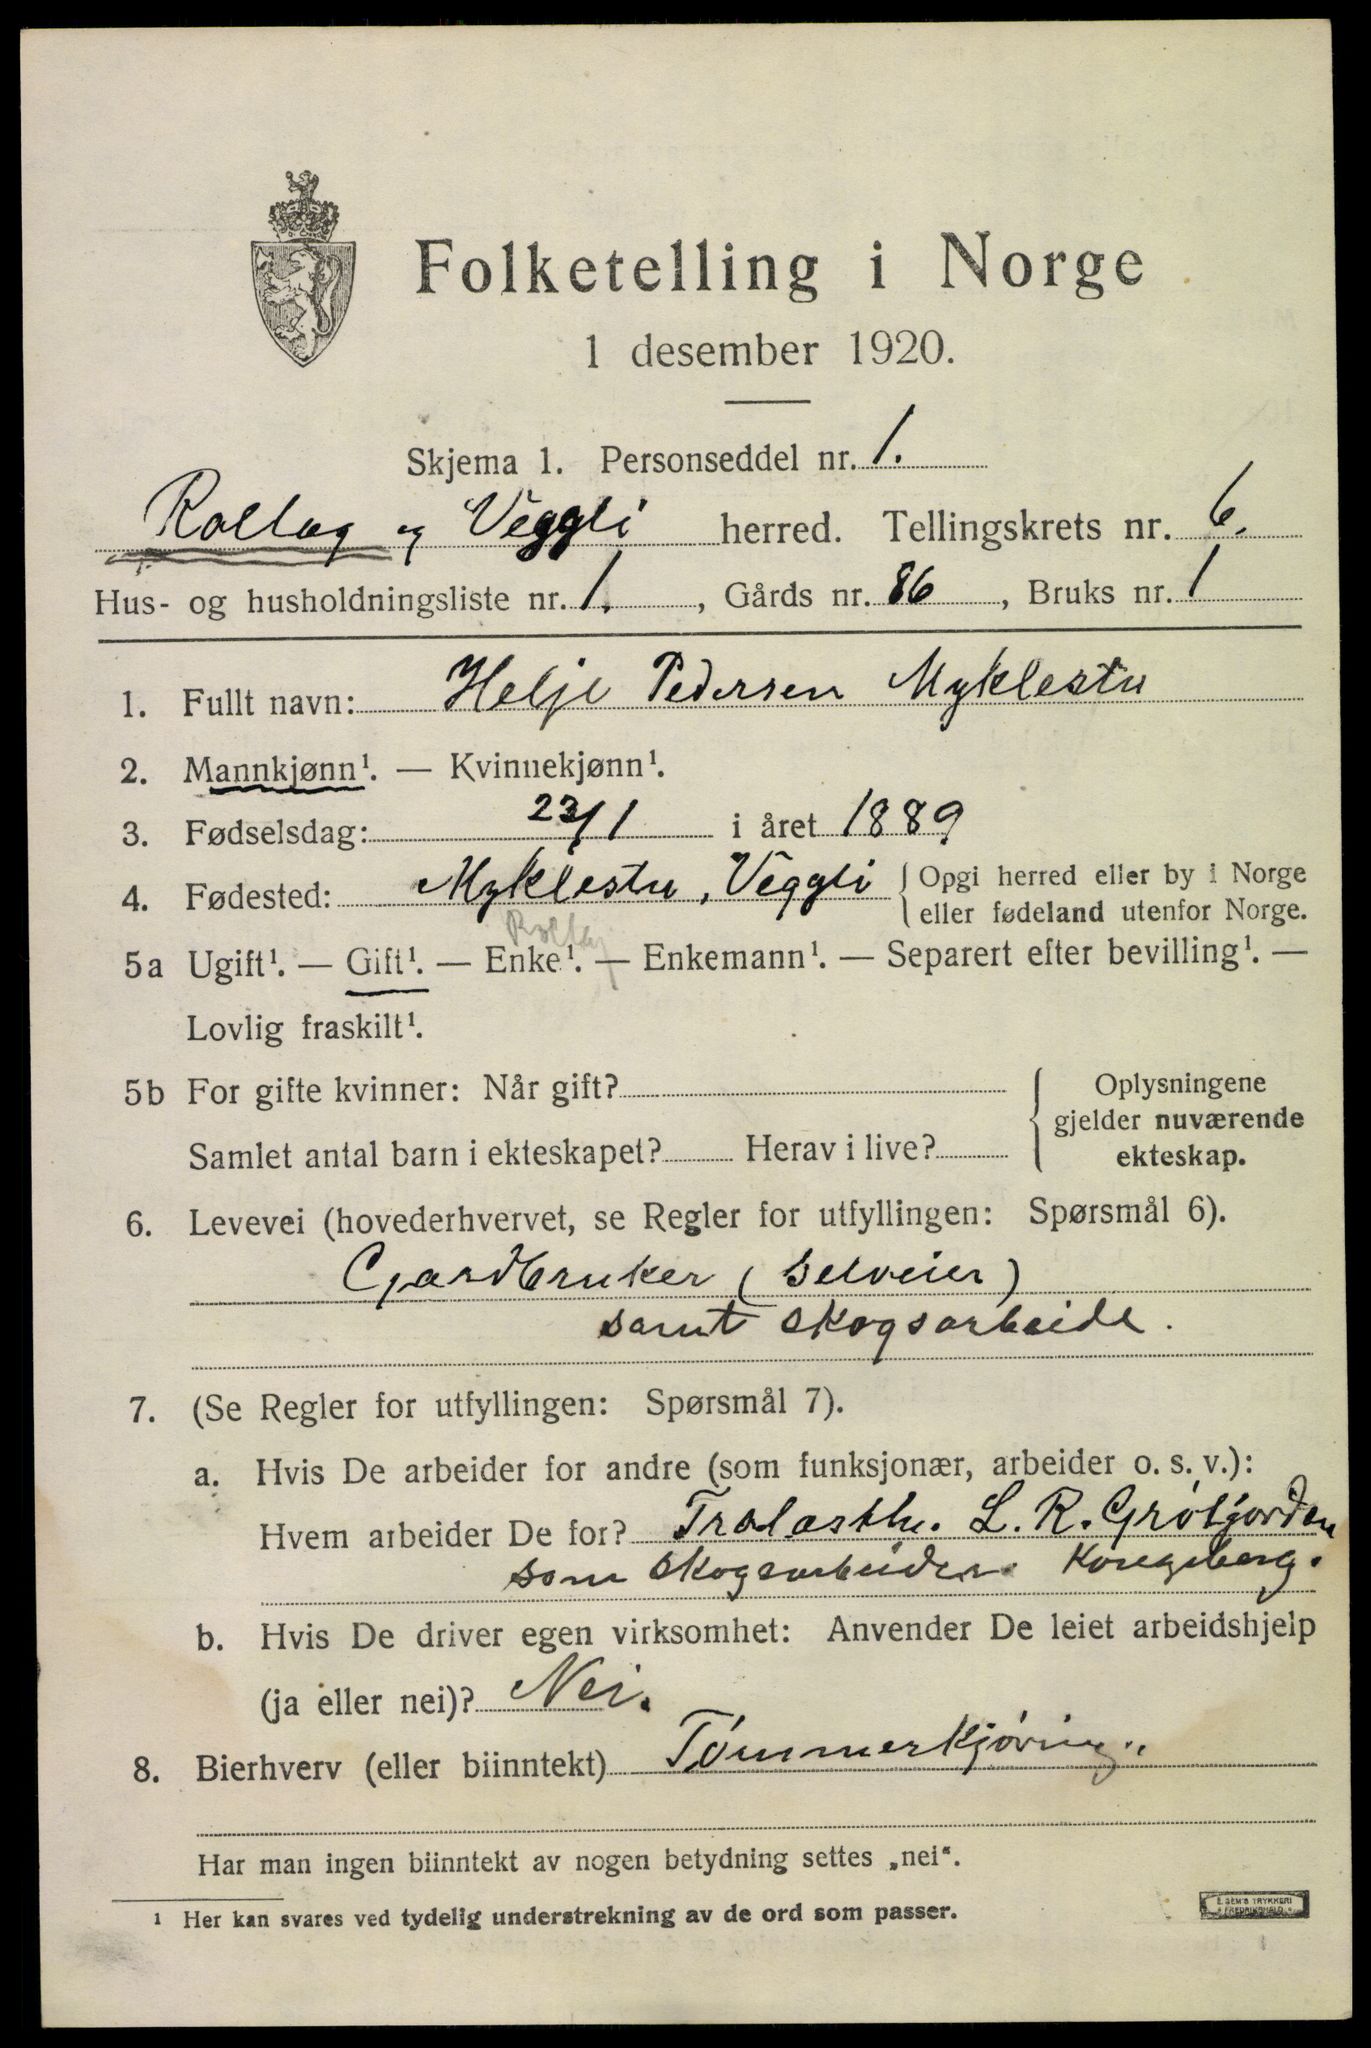 Folketelling i Norge
1 desember 1920.
Skjema 1. Personseddel nr. 1.
Rollag og Veggli herred. Tellingskrets nr. 6.
Hus- og husholdningsliste nr. 1. , Gårds nr. 86 , Bruks nr. 1
1. Fullt navn: Helje Pedersen Myklestu
2. Mannkjønn¹. — Kvinnekjønn¹.
3. Fødselsdag: 23/1 i året 1889
4. Fødested: Myklestu, Veggli { Opgi herred eller by i Norge
eller fødeland utenfor Norge.
Rollag
5a Ugift¹. — Gift¹. — Enke¹. — Enkemann¹. — Separert efter bevilling¹. —
Lovlig fraskilt¹.
5b For gifte kvinner: Når gift? { Oplysningene
gjelder nuværende
Samlet antal barn i ekteskapet? Herav i live? ekteskap.
6. Levevei (hovederhvervet, se Regler for utfyllingen: Spørsmål 6).
Gardbruker (selveier)
samt skogsarbeide.
7. (Se Regler for utfyllingen: Spørsmål 7).
a. Hvis De arbeider for andre (som funksjonær, arbeider o. s. v.):
Hvem arbeider De for? Tralasth. L. R. Grötjorden
som skogsarbeider. Kongsberg.
b. Hvis De driver egen virksomhet: Anvender De leiet arbeidshjelp
(ja eller nei)? Nei.
8. Bierhverv (eller biinntekt) Tömmerkjöring.
Har man ingen biinntekt av nogen betydning settes „nei“.
¹ Her kan svares ved tydelig understrekning av de ord som passer.
E. SEM'S TRYKKERI
FREDRIKSHALD